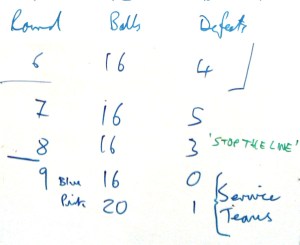 Round Balls Defects
6 16 4
7 16 5
8 16 3 'STOP THE LINE'
9 Blue 16 0 Service
Pink 20 1 Teams